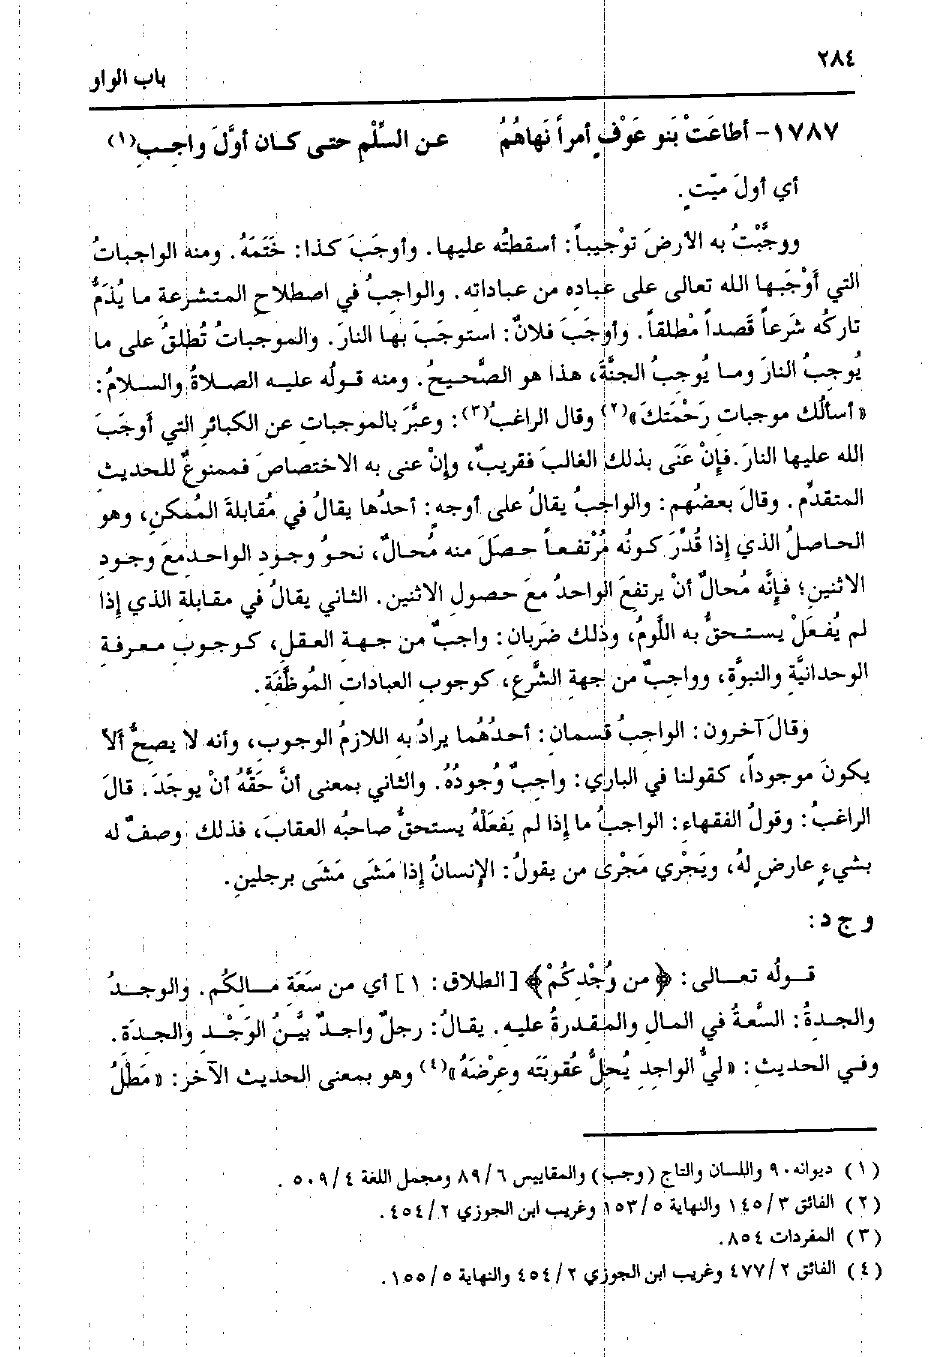 ٢٨٤
باب الواو
١٧٨٧- أطاعَتْ بَنو عَوْفٍ أمراً نَهاهُمُ عن السِّلْمِ حتى كان أوَّلَ واجِبِ(١)
أي أولَ ميّتٍ.
ووجَّبْتُ به الأرضَ توْجيباً: أسقطتُه عليها. وأوجَبَ كذا: خَتَمَهُ. ومنه الواجباتُ
التي أَوْجَبها الله تعالى على عباده من عباداتِه. والواجبُ في اصطلاحِ المتشرعةِ ما يُذَمُّ
تاركُه شَرعاً قَصداً مُطلقاً. وأوجَبَ فلانٌ: استوجَبَ بها النارَ. والموجباتُ تُطلقُ على ما
يُوجبُ النارَ وما يُوجبُ الجنَّةَ، هذا هو الصَّحيحُ. ومنه قولُه عليه الصلاةُ والسلامُ:
«أسألُك موجباتِ رَحْمَتكَ»(٢) وقال الراغبُ(٣): وعبَّرَ بالموجباتِ عن الكبائرِ التي أَوجَبَ
الله عليها النارَ. فإنْ عَنَى بذلك الغالبَ فقريبٌ، وإنْ عنى به الاختصاصَ فممنوعٌ للحديثِ
المتقدِّم. وقالَ بعضُهم: والواجبُ يقالُ على أوجهٍ: أحدُها يقالُ في مُقابلةَ المُمكنِ، وهو
الحاصلُ الذي إذا قُدِّرَ كونُه مُرْتفعاً حصَلَ منه مُحالٌ، نحوُ وجودِ الواحدِ معَ وجودِ
الاثنينِ؛ فإنَّه مُحالٌ أنْ يرتفعَ الواحدُ معَ حصولِ الاثنين. الثاني يقالُ في مقابلةِ الذي إذا
لم يُفعَلْ يستحقُّ به اللَّومُ، وذلك ضَربان: واجبٌ من جهةِ العقلِ، كوجوبِ معرفةِ
الوحدانيَّةِ والنبوَّةِ، وواجبٌ من جهةِ الشَّرعِ، كوجوبِ العباداتِ المُوظَّفَةِ.
وقالَ آخرون: الواجبُ قسمان: أحدُهُما يرادُ به اللازمُ الوجوبِ، وأنه لا يصحُّ ألاَّ
يكونَ موجوداً، كقولنا في الباري: واجبٌ وُجودُهُ. والثاني بمعنى أنَّ حقَّهُ أنْ يوجَدَ. قالَ
الراغبُ: وقولُ الفقهاءِ: الواجبُ ما إذا لم يَفعَلْهُ يستحقُّ صاحبُه العقابَ، فذلك وصفٌ له
بشيءٍ عارضٍ لهُ، ويَجْري مَجْرى من يقولُ: الإنسانُ إذا مَشَى مَشَى برجلينِ.
و ج د:
قولُه تعالى: ﴿من وُجْدِكُمْ﴾ [الطلاق: ١] أي من سَعَةِ مالِكُم. والوجدُ
والجدةُ: السَّعةُ في المالِ والمقدرةُ عليهِ. يقالُ: رجلٌ واجدٌ بيَّنُ الوَجْدِ والجدَةِ.
وفي الحديثِ: «ليُّ الواجِدِ يُحِلُّ عُقوبَتَه وعِرْضَهُ»(٤) وهو بمعنى الحديث الآخر: «مَطْلُ
(١) ديوانه ٩٠ واللسان والتاج (وجب) والمقاييس ٦/ ٨٩ ومجمل اللغة ٤/ ٥٠٩.
(٢) الفائق ٣/ ١٤٥ والنهاية ٥/ ١٥٣ وغريب ابن الجوزي ٢/ ٤٥٤.
(٣) المفردات ٨٥٤.
(٤) الفائق ٢/ ٤٧٧ وغريب ابن الجوزي ٢/ ٤٥٤ والنهاية ٥/ ١٥٥.